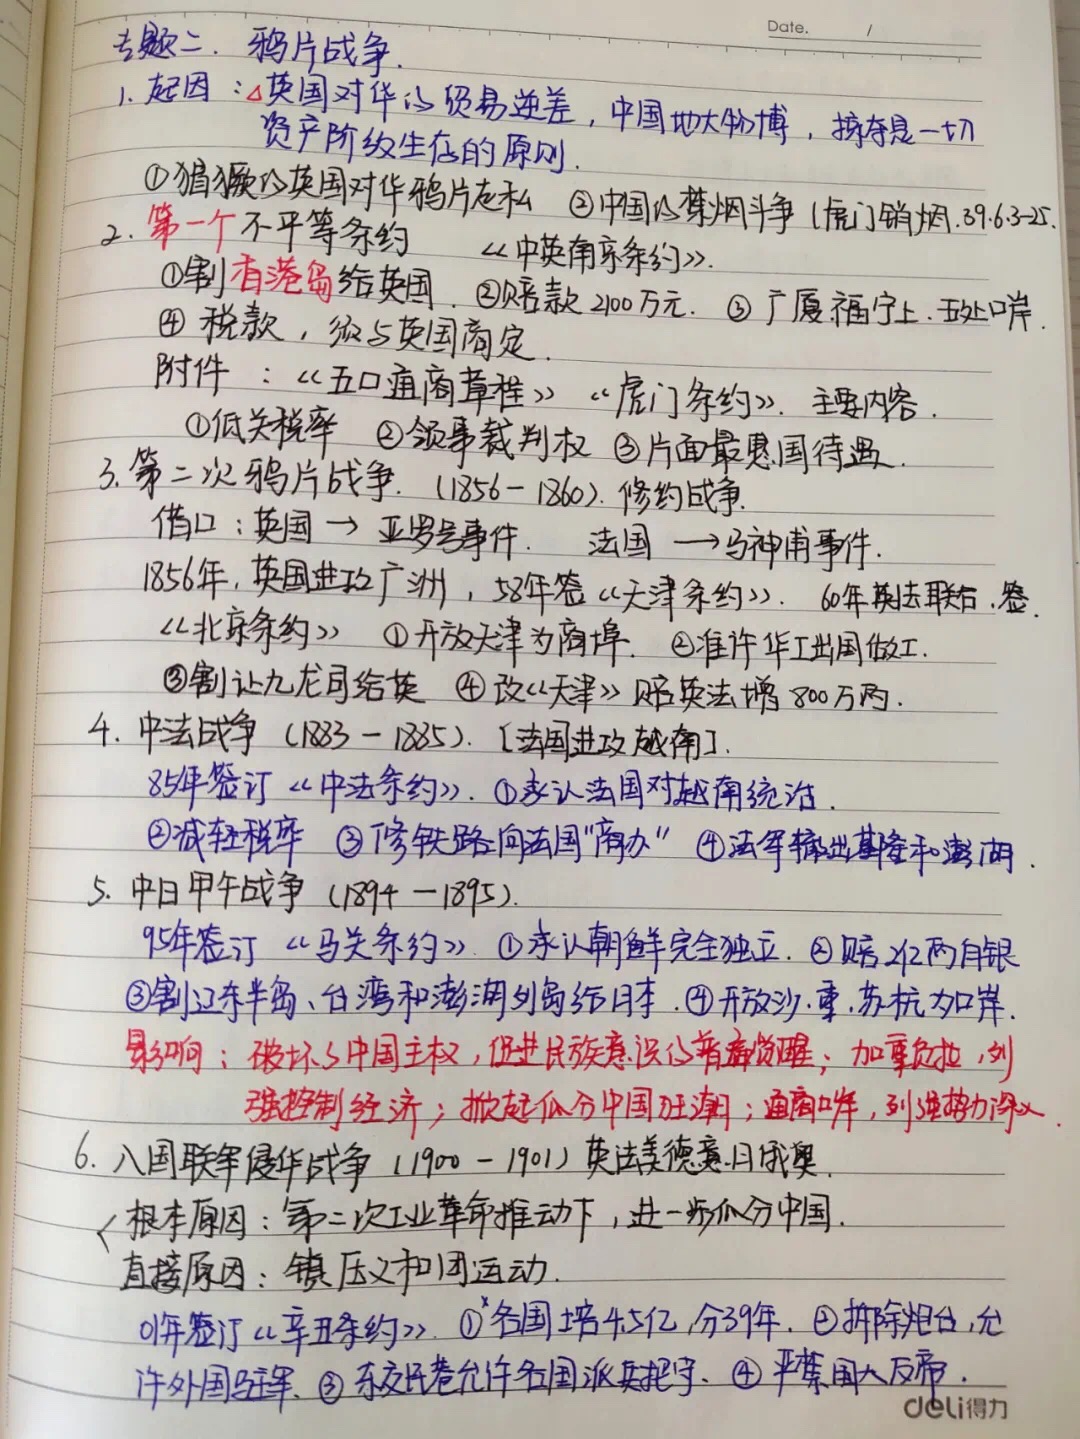 Date. /
专题二. 鸦片战争.
1. 起因:△英国对华的贸易逆差,中国地大物博,掠夺是一切
资产阶级生存的原则.
①猖獗的英国对华鸦片走私 ②中国的禁烟斗争(虎门销烟.39.6.3-25.
2. 第一个不平等条约 《中英南京条约》.
①割香港岛给英国. ②赔款2100万元. ③广厦福宁上.五处口岸.
④税款,须与英国商定.
附件:《五口通商章程》《虎门条约》. 主要内容.
①低关税率 ②领事裁判权 ③片面最惠国待遇.
3. 第二次鸦片战争. (1856-1860). 修约战争.
借口:英国→亚罗号事件. 法国→马神甫事件.
1856年,英国进攻广洲,58年签《天津条约》. 60年英法联合.签.
《北京条约》 ①开放天津为商埠. ②准许华工出国做工.
③割让九龙司给英 ④改《天津》赔英法增800万两.
4. 中法战争(1883-1885). [法国进攻越南].
85年签订《中法条约》. ①承认法国对越南统治.
②减轻税率 ③修铁路向法国"商办" ④法军撤出基隆和澎湖.
5. 中日甲午战争(1894-1895).
95年签订《马关条约》. ①承认朝鲜完全独立. ②赔2亿两白银
③割辽东半岛、台湾和澎湖列岛给日本. ④开放沙.重.苏杭为口岸.
影响:破坏了中国主权,促进民族意识的普遍觉醒;加重负担,列
强控制经济;掀起瓜分中国狂潮;通商口岸,列强势力深入.
6. 八国联军侵华战争(1900-1901)英法美德意日俄奥.
根本原因:第二次工业革命推动下,进一步瓜分中国.
直接原因:镇压义和团运动.
01年签订《辛丑条约》. ①各国赔4.5亿,分39年. ②拆除炮台,允
许外国驻军. ③东交民巷允许各国派兵把守. ④严禁国人反帝.
deli得力